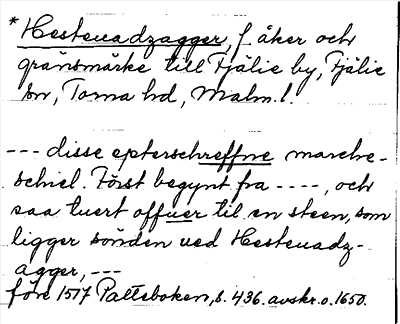 * Hestenadzagger, f. åker och
gränsmärke till Fjälie by, Fjälie
sn, Torna hd, Malm. l.
--- disse epterschreffne marche-
schiel. Först begynt fra ----, och
saa tuert offuer til en steen, som
ligger sönden ued Hestenadz-
agger, ---
före 1517 Palteboken, s. 436. avskr. o. 1650.